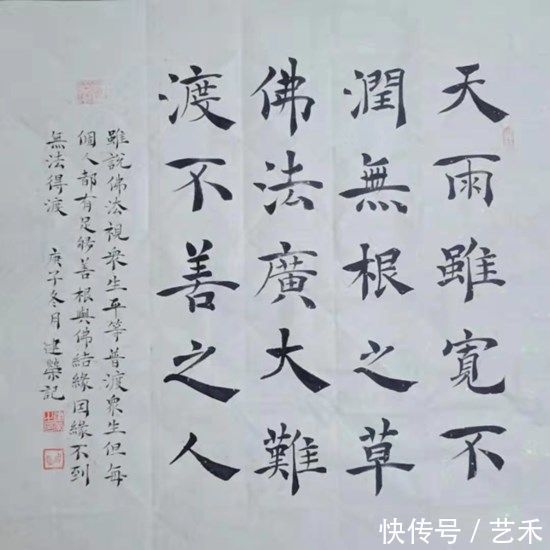 天雨雖寬不
潤無根之草
佛法廣大難
渡不善之人
雖說佛法視衆生平等普渡衆生但每
個人都有足夠善根與佛結緣因緣不到
無法得渡 庚子冬月建榮記
快传号/艺禾